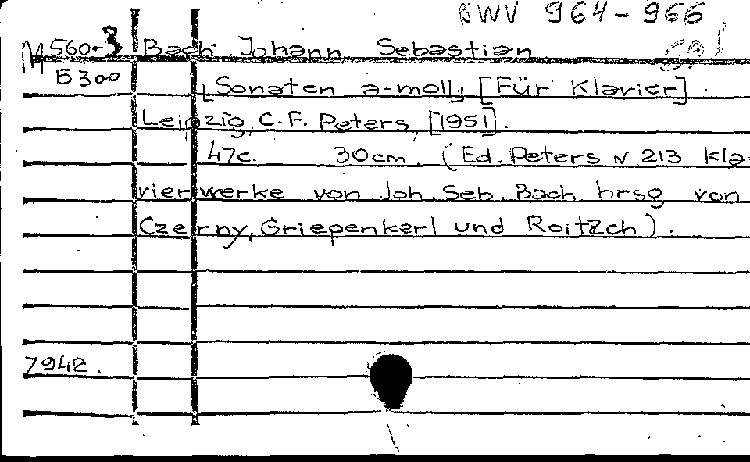 BWV 964-966
M 560.3 Bach Johann Sebastian
B300
[Sonaten a-moll] [Für Klavier].
Leipzig, C.F. Peters, [1951].
47c. 30cm. (Ed. Peters N 213 Kla-
vierwerke von Joh. Seb. Bach hrsg von
Czerny, Griepenkerl und Roitzch).
7942.